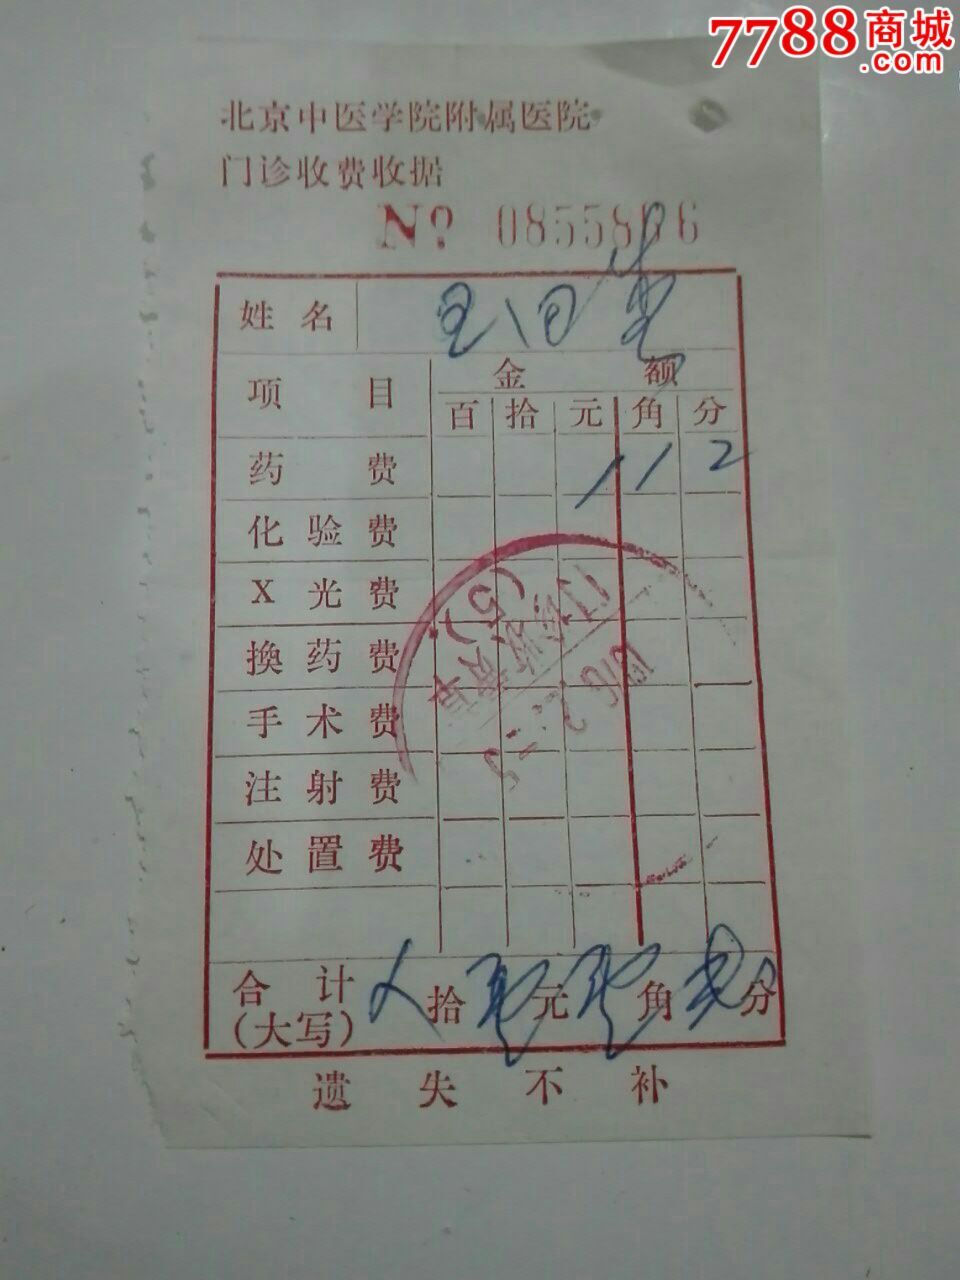 7788商城
.com
北京中医学院附属医院
门诊收费收据
No 0855866
姓名
项目 金额
百 拾 元 角 分
药费 1 1 2
化验费
X光费
换药费
手术费
注射费
处置费
合计
(大写) 拾 元 角 分
遗失不补
门诊收费章
(5)